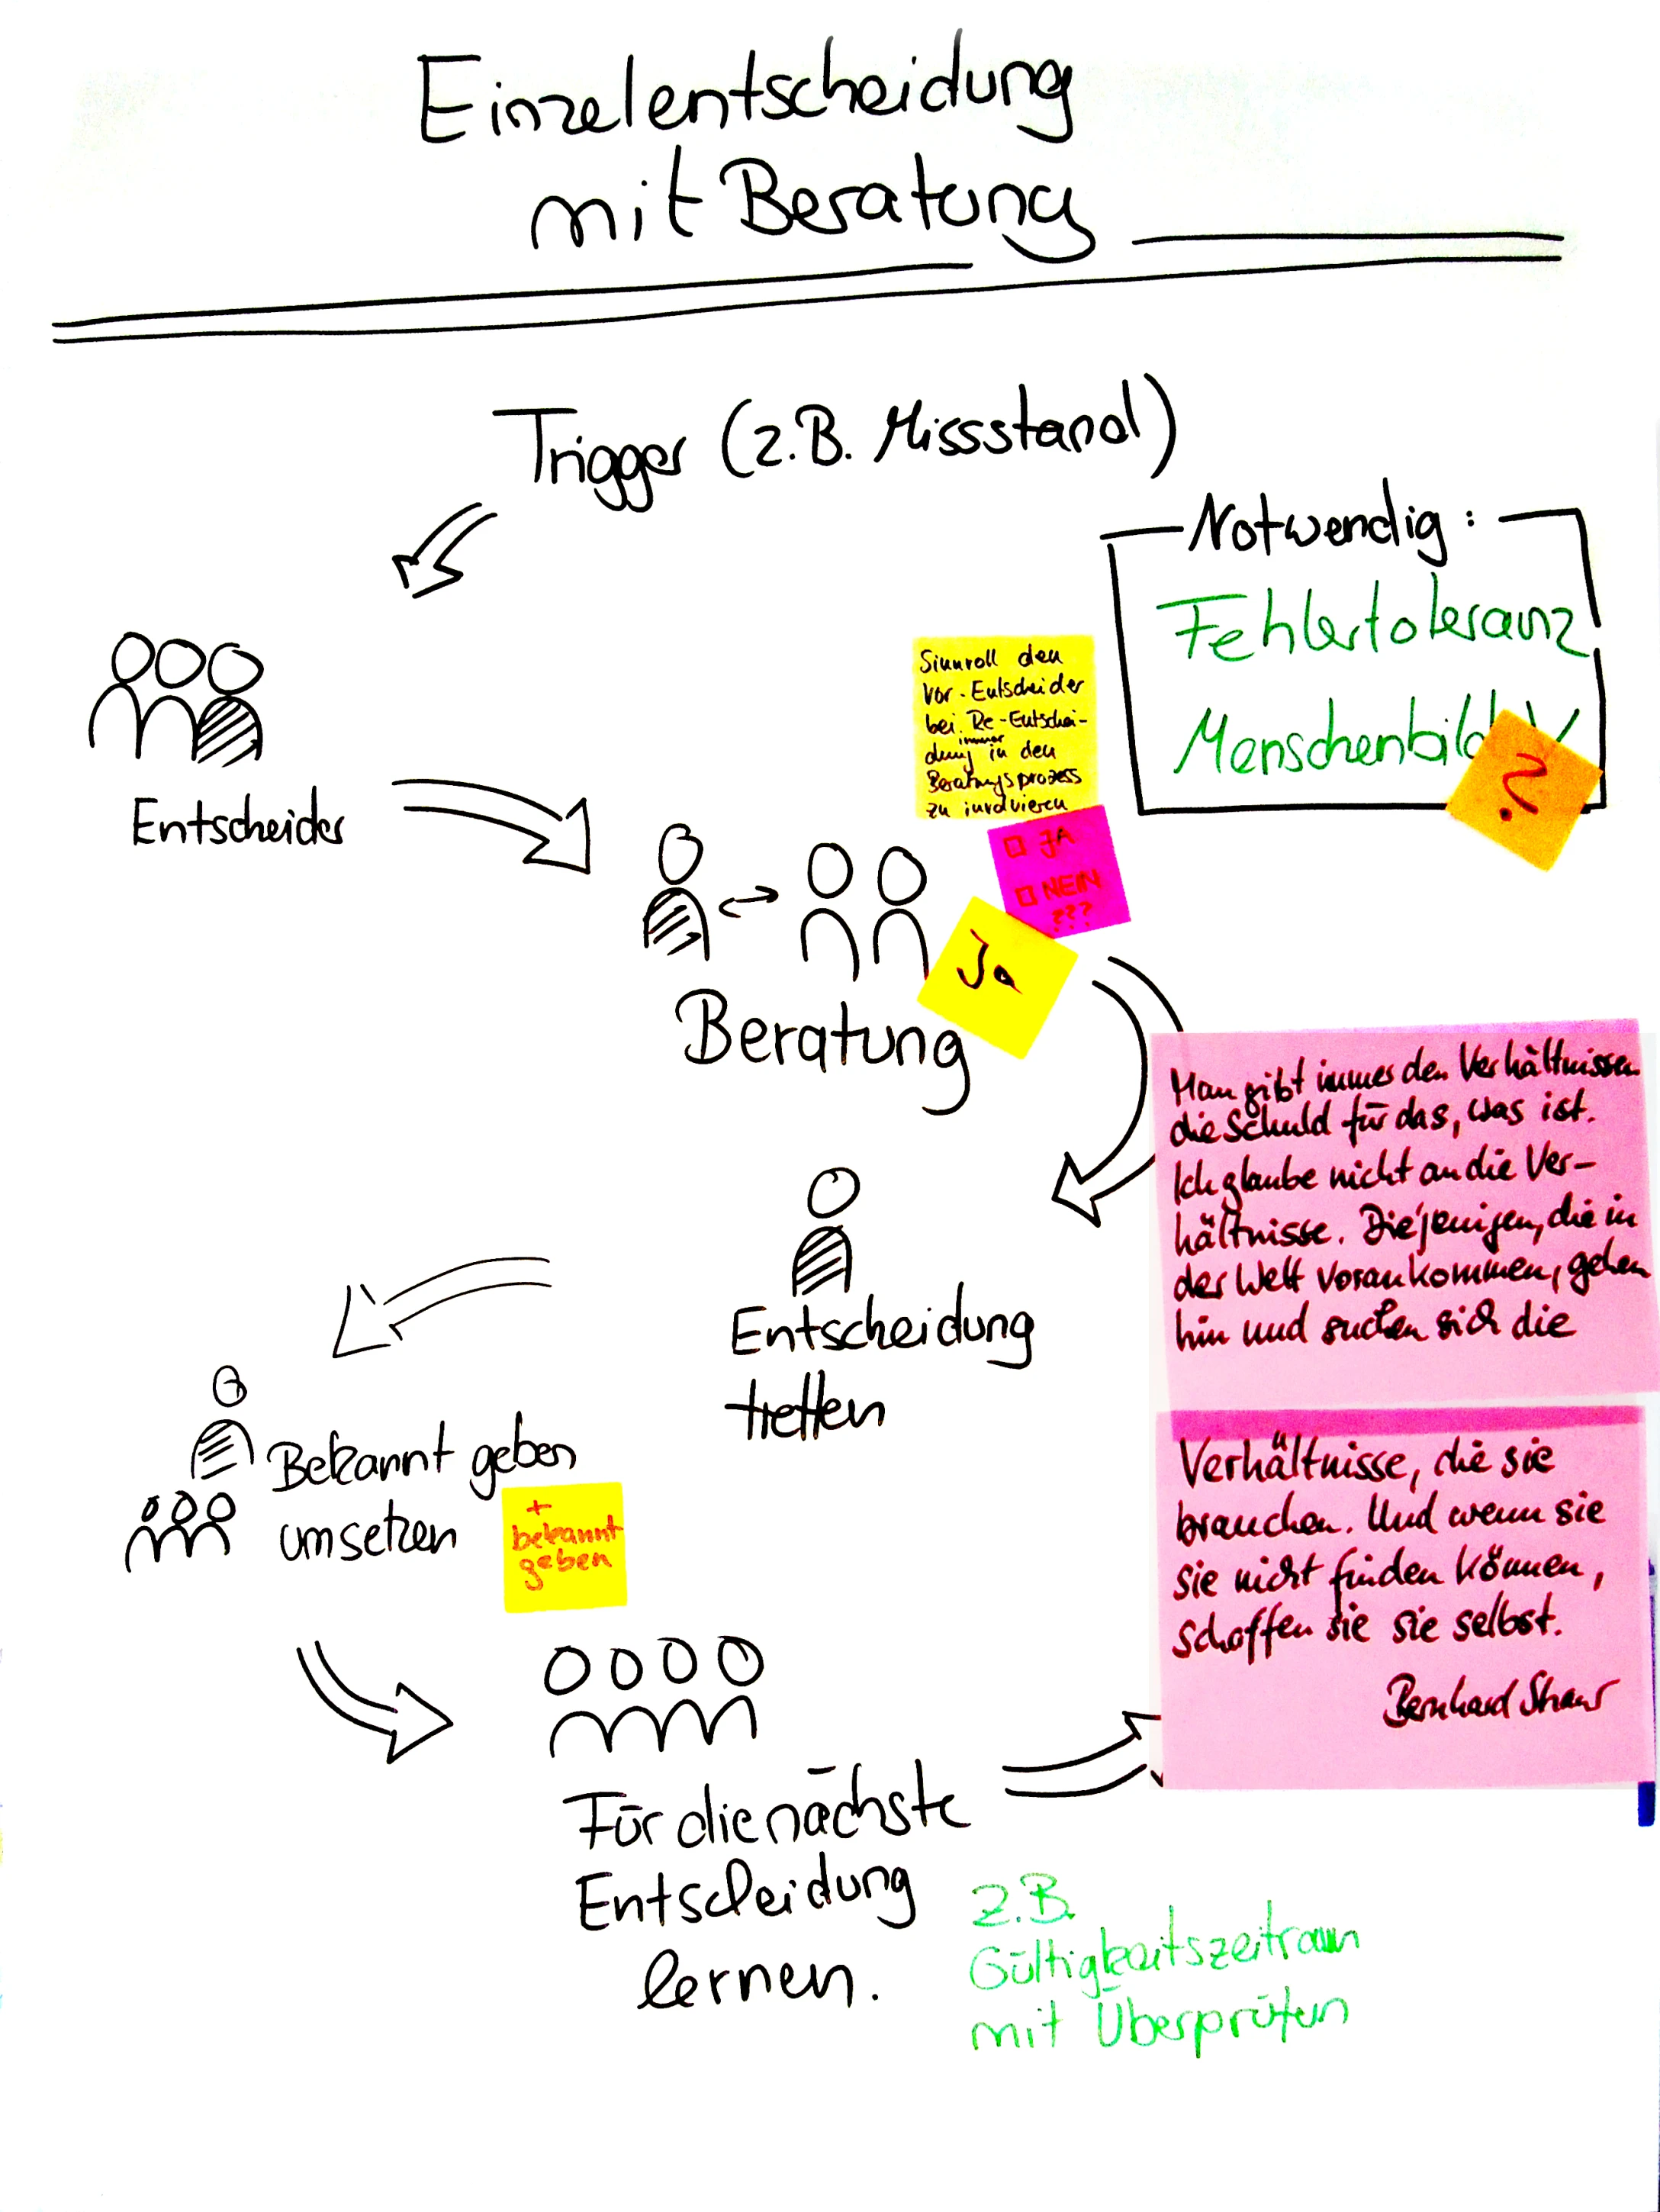 Einzelentscheidung
mit Beratung
Trigger (z.B. Missstand)
Notwendig:
Fehlertoleranz
Menschenbild Y
?
Entscheider
Sinnvoll den
Vor-Entscheider
bei Re-Entschei-
dung immer in den
Beratungsprozess
zu involvieren
JA
NEIN
???
Ja
Beratung
Entscheidung
treffen
Man gibt immer den Verhältnissen
die Schuld für das, was ist.
Ich glaube nicht an die Ver-
hältnisse. Diejenigen, die in
der Welt vorankommen, gehen
hin und suchen sich die
Verhältnisse, die sie
brauchen. Und wenn sie
sie nicht finden können,
schaffen sie sie selbst.
Bernhard Shaw
Bekannt geben
umsetzen
+
bekannt
geben
Für die nächste
Entscheidung
lernen.
z.B.
Gültigkeitszeitraum
mit Überprüfen